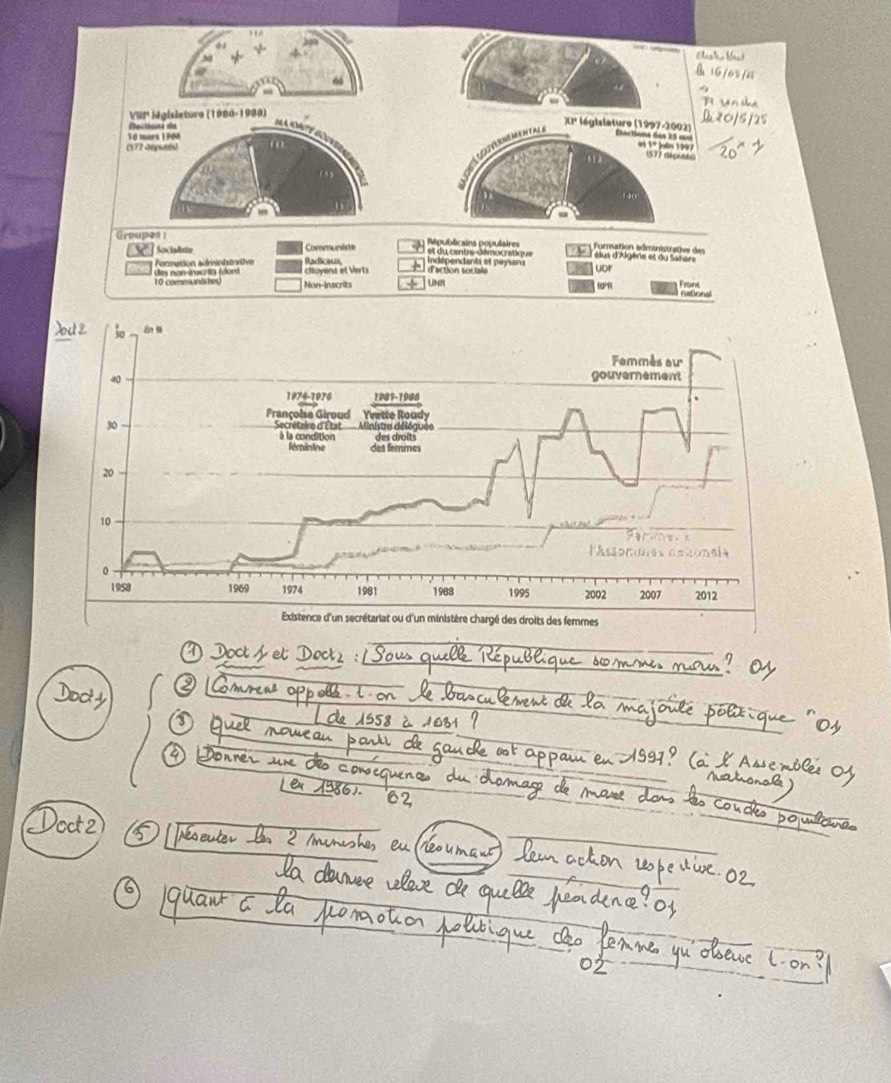 le 16/05/
le 20/5/25
VIIIe législature (1986-1988)
Élections du
16 mars 1986
(577 députés)
MAJORITÉ GOUVERNEMENTALE
XIe législature (1997-2002)
Élections des 25 mai
et 1er juin 1997
(577 députés)
MAJORITÉ GOUVERNEMENTALE
Groupes :
Socialiste
Formation administrative
des non-inscrits (dont
10 communistes)
Communiste
Radicaux,
citoyens et Verts
Non-inscrits
Républicains populaires
et du centre-démocratique
Indépendants et paysans
d'action sociale
UNR
Formation administrative des
élus d'Algérie et du Sahara
UDF
RPR
Front
national
Doct 2
50 En %
40
30
20
10
0
Femmes au
gouvernement
1974-1976
Françoise Giroud
Secrétaire d'État
à la condition
féminine
1981-1986
Yvette Roudy
Ministre déléguée
des droits
des femmes
Femmes à
l'Assemblée nationale
1958 1969 1974 1981 1988 1995 2002 2007 2012
Existence d'un secrétariat ou d'un ministère chargé des droits des femmes
① Doct 1 et Doct 2 : Sous quelle République sommes nous ? 01
Doct 1
② Comment appelle-t-on le basculement de la majorité politique 01
de 1958 à 1981 ?
③ Quel nouveau parti de gauche est apparu en 1997 ? (à l'Assemblée 01
nationale)
④ Donner une des conséquences du chomage de masse dans les couches populaires
en 1986). 02
Doct 2
⑤ Présenter les 2 ministres en résumant leur action respective. 02
la dernière relève de quelle présidence ? 01
⑥ quant à la promotion politique des femmes qu'observe t-on ?
02